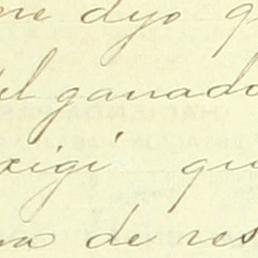 me dijo q
el ganado
xigí qu
na de res